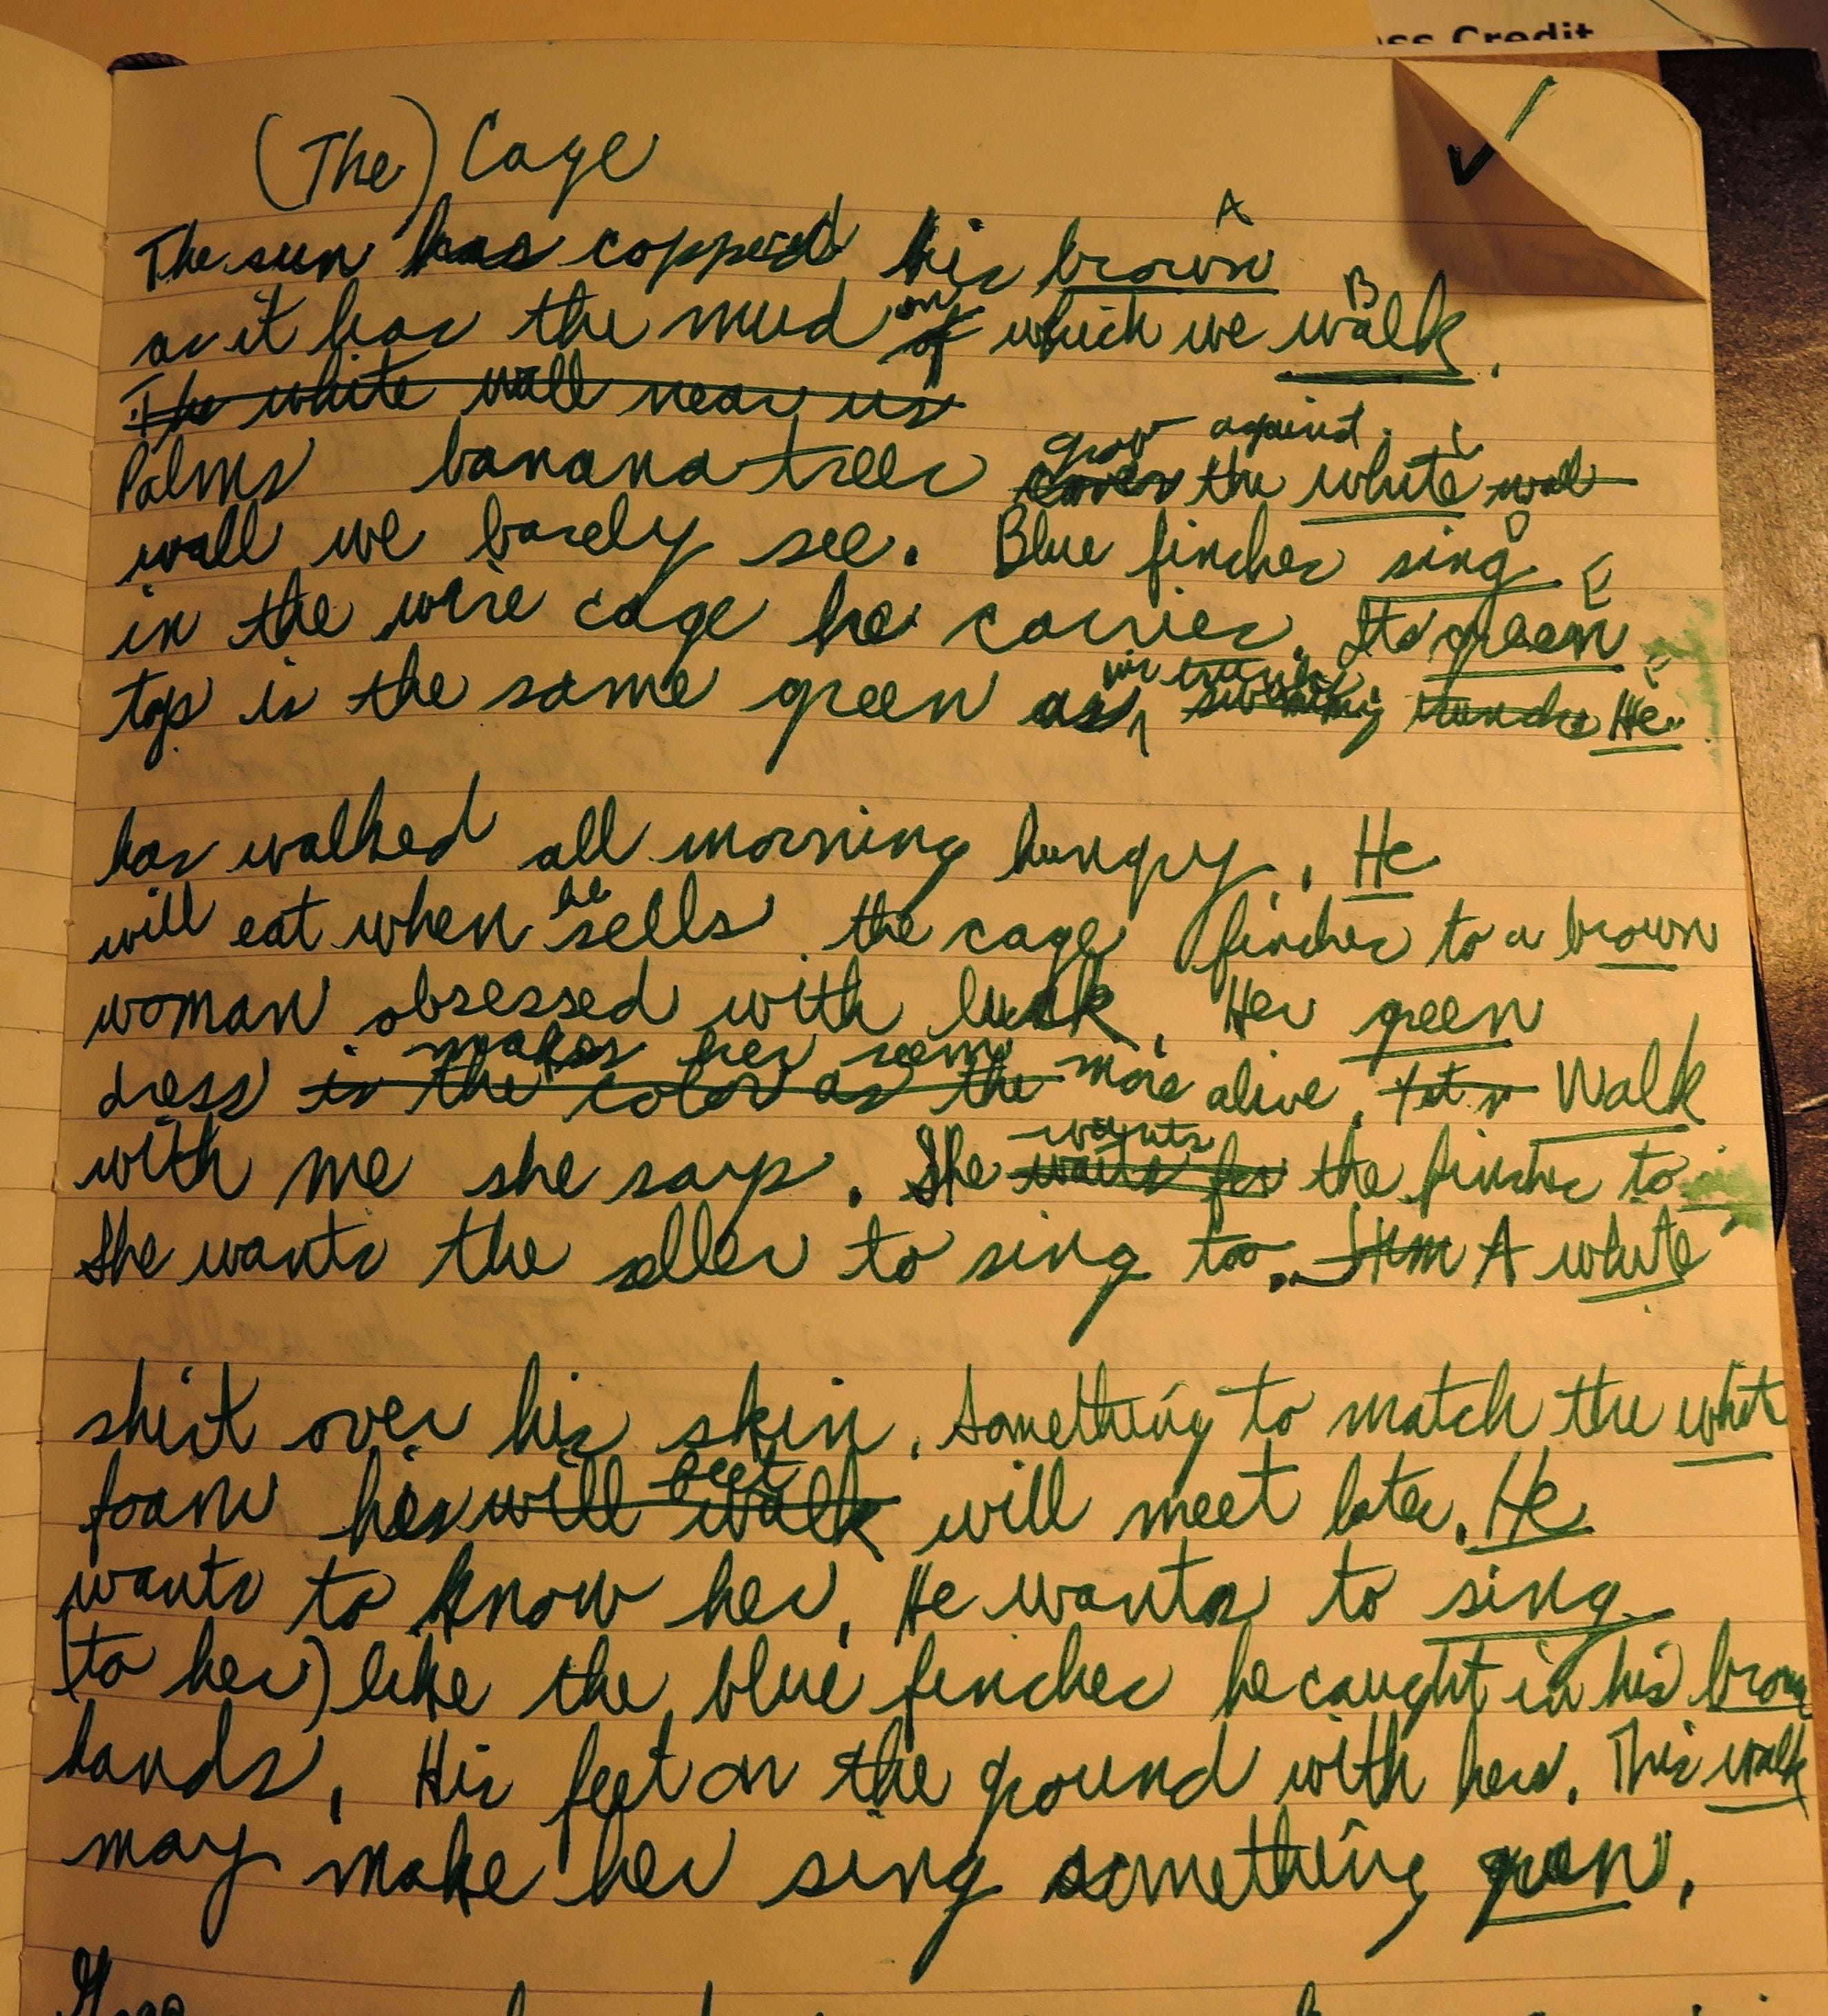 ss Credit
(The) Cage
A
The sun has coppered his brown
B
as it has the mud on of which we walk.
The white wall near us
grow against C
Palms banana trees cover the white wall
D
wall we barely see. Blue finches sing
E
in the wire cage he carries. Its green
vir trunks F
top is the same green as swaying trunks He
has walked all morning hungry. He
he
will eat when sells the cage finches to a brown
woman obsessed with luck. Her green
makes her seem
dress is the color as the more alive. Walk
wants
with me she says. She waits for the finches to
She wants the seller to sing too. Him A white
shirt over his skin. Something to match the white
feet
foam his will walk will meet later. He
wants to know her. He wants to sing
(to her) like the blue finches he caught in his brown
hands. His feet on the ground with hers. This walk
may make her sing something green.